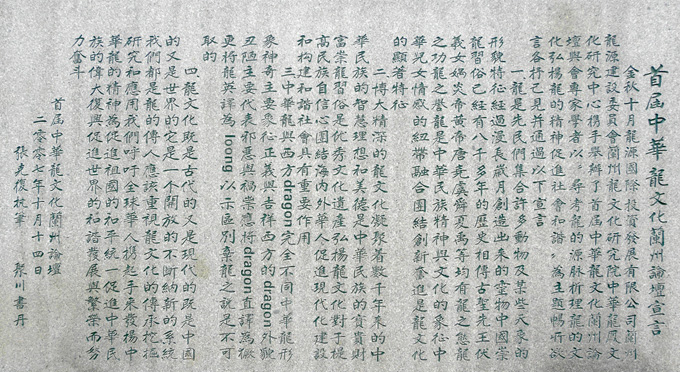 首屆中華龍文化蘭州論壇宣言
金秋十月龍源國際投資發展有限公司蘭州
龍源建設委員會蘭州龍文化研究院中華龍廈文
化研究中心携手舉辦了首屆中華龍文化蘭州論
壇與會專家學者以尋考龍的源脉析理龍的文
化弘揚龍的精神促進社會和諧為主題暢所欲
言各抒己見并通過以下宣言
一龍是先民們集合許多動物及某些天象的
形貌特征經過漫長歲月創造出來的靈物中國崇
龍習俗已經有八千多年的歷史相傳古聖先王伏
羲女媧炎帝黄帝唐堯虞舜夏禹等均有龍之態龍
之功龍之譽龍是中華民族精神與文化的象征中
華兒女情感的紐帶融合團結創新奮進是龍文化
的顯著特征
二博大精深的龍文化凝聚着數千年來的中
華民族的智慧理想和美德是中華民族的寶貴財
富崇龍習俗是优秀文化遺産弘楊龍文化對于提
高民族自信心團結海内外華人促進現代化建設
和构建和諧社會具有重要作用
三中華龍與西方dragon完全不同中華龍形
象神奇主要象征正義與吉祥西方的dragon外貌
丑陋主要代表邪惡與禍祟應將dragon直譯為獗
更將龍英譯為loong以示區别棄龍之説是不可
取的
四龍文化既是古代的又是現代的既是中國
的又是世界的它是一个開放的不断納新的系統
我們都是龍的傳人應該重視龍文化的傳承挖掘
研究和應用我們呼吁全球華人携起手來發揚中
華龍的精神為促進祖國的和平統一促進中華民
族的偉大復興促進世界的和諧發展與繁榮而努
力奮斗
首屆中華龍文化蘭州論壇
二零零七年十月十四日
張克復執筆 聚川書丹